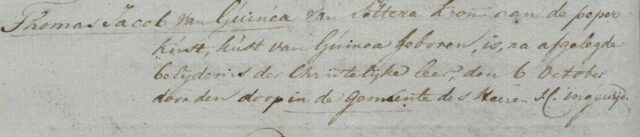 Thomas Jacob van Guinéa van Settera Kroú aan de peper
kúst, kúst van Gúinea geboren, is, na afgelegde
belijdenis der Christelijke leer, den 6 October
door den doop in de gemeente des Heeren J. C. ingewijd.